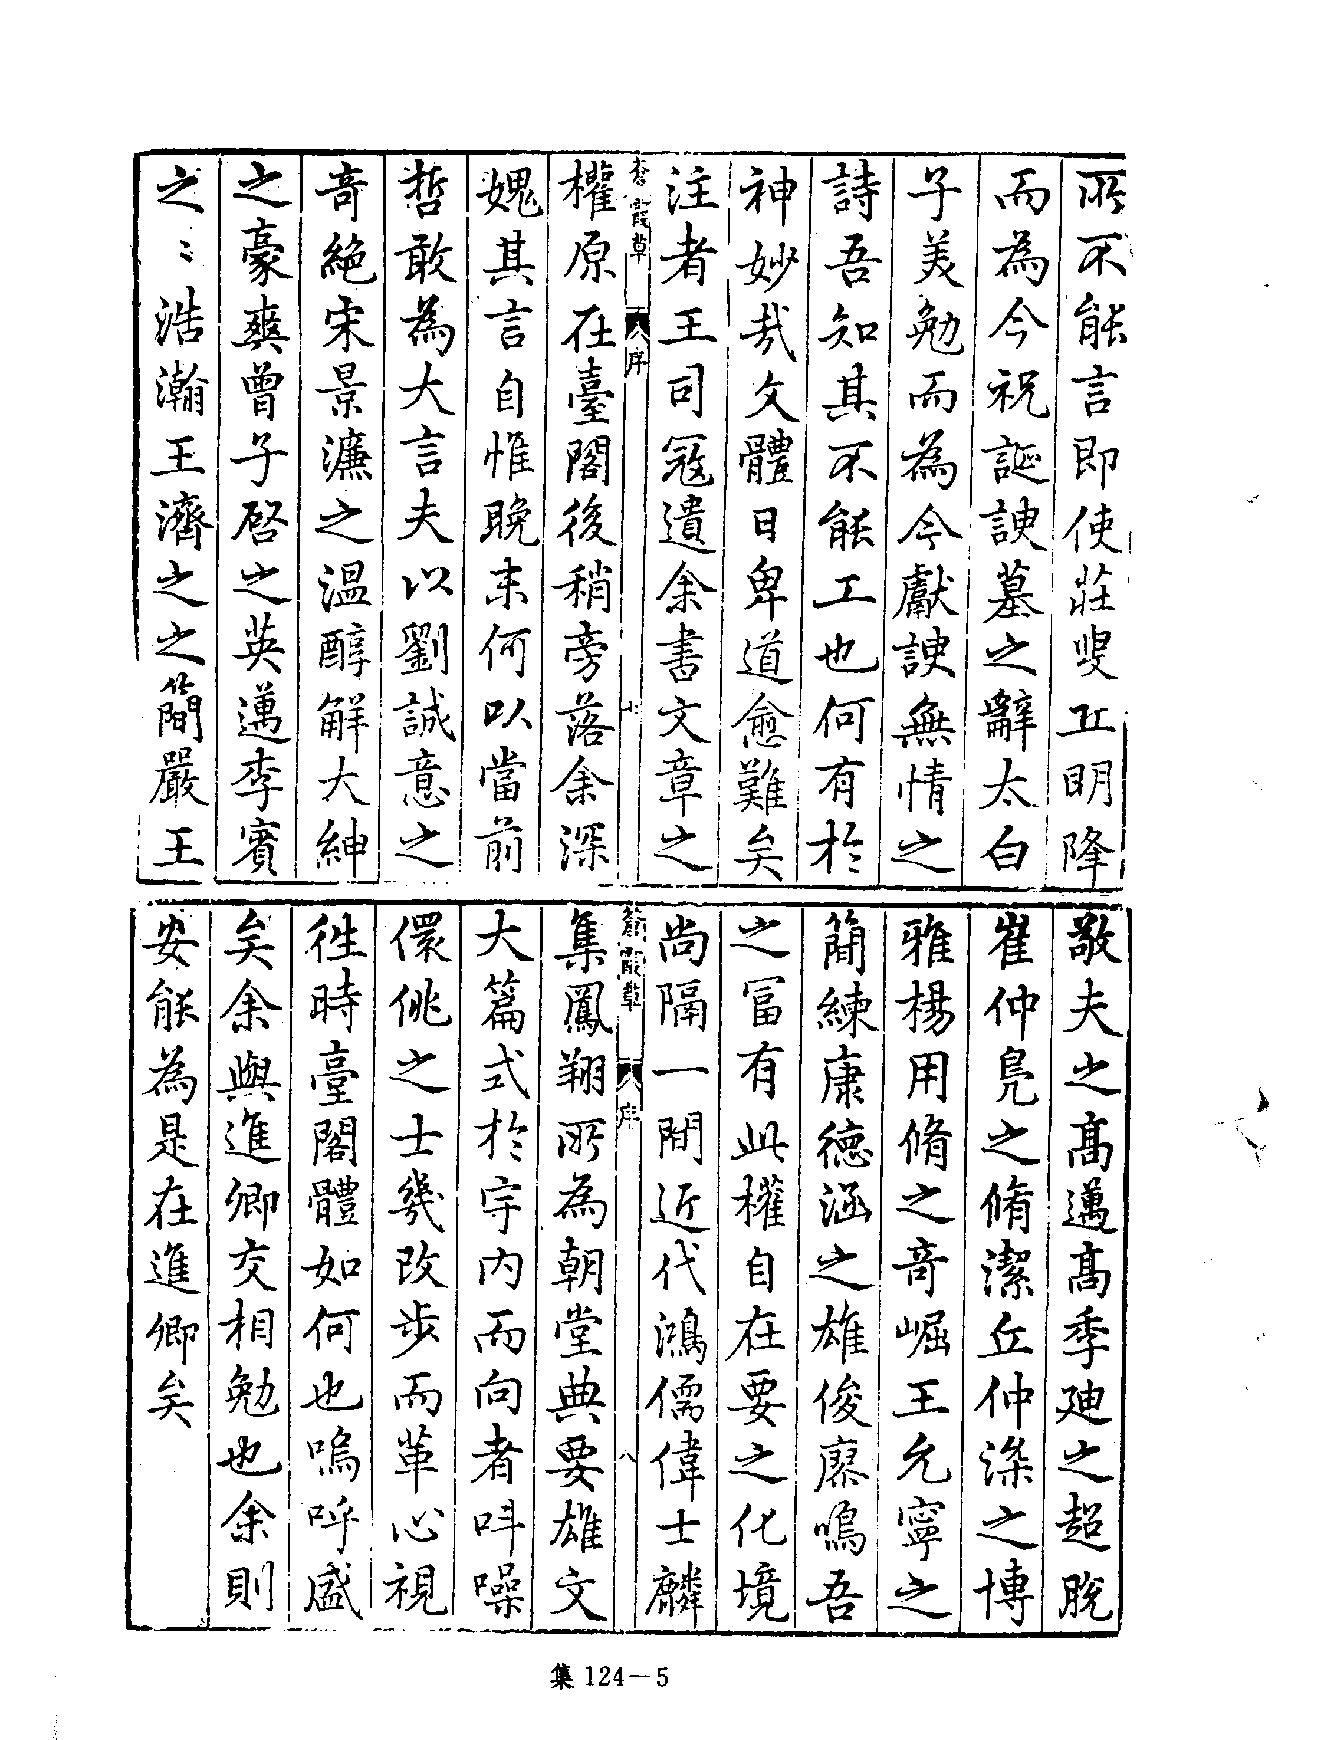 所不能言即使莊叟丘明降
而為今祝誕諛墓之辭太白
子美勉而為今獻諛無情之
詩吾知其不能工也何有於
神妙哉文體日卑道愈難矣
注者王司冦遺余書文章之
蒼霞草
序
七
權原在臺閣後稍旁落余深
媿其言自惟晚末何以當前
哲敢為大言夫以劉誠意之
竒絕宋景濂之溫醇解大紳
之豪爽曾子啓之英邁李賓
之〻浩瀚王濟之之簡嚴王
敬夫之髙邁髙季迪之超脫
崔仲鳧之脩潔丘仲深之博
雅楊用脩之竒崛王允寧之
簡練康德涵之雄俊廖鳴吾
之冨有此權自在要之化境
尚隔一間近代鴻儒偉士麟
蒼霞草
序
八
集鳳翔所為朝堂典要雄文
大篇式於宇内而向者呌噪
儇佻之士幾改步而革心視
徃時臺閣體如何也嗚呼盛
矣余與進卿交相勉也余則
安能為是在進卿矣
集 124－5